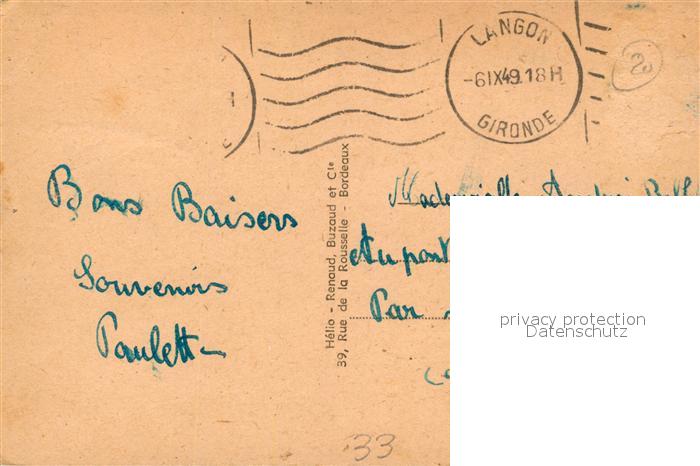 LANGON
-6 IX 49. 18 H
GIRONDE
20
Bons Baisers
Souvenirs
Paulette
Hélio - Renaud, Buzaud et Cie
39, Rue de la Rousselle - Bordeaux
Mademoiselle
Au pont
Par
privacy protection
Datenschutz
33